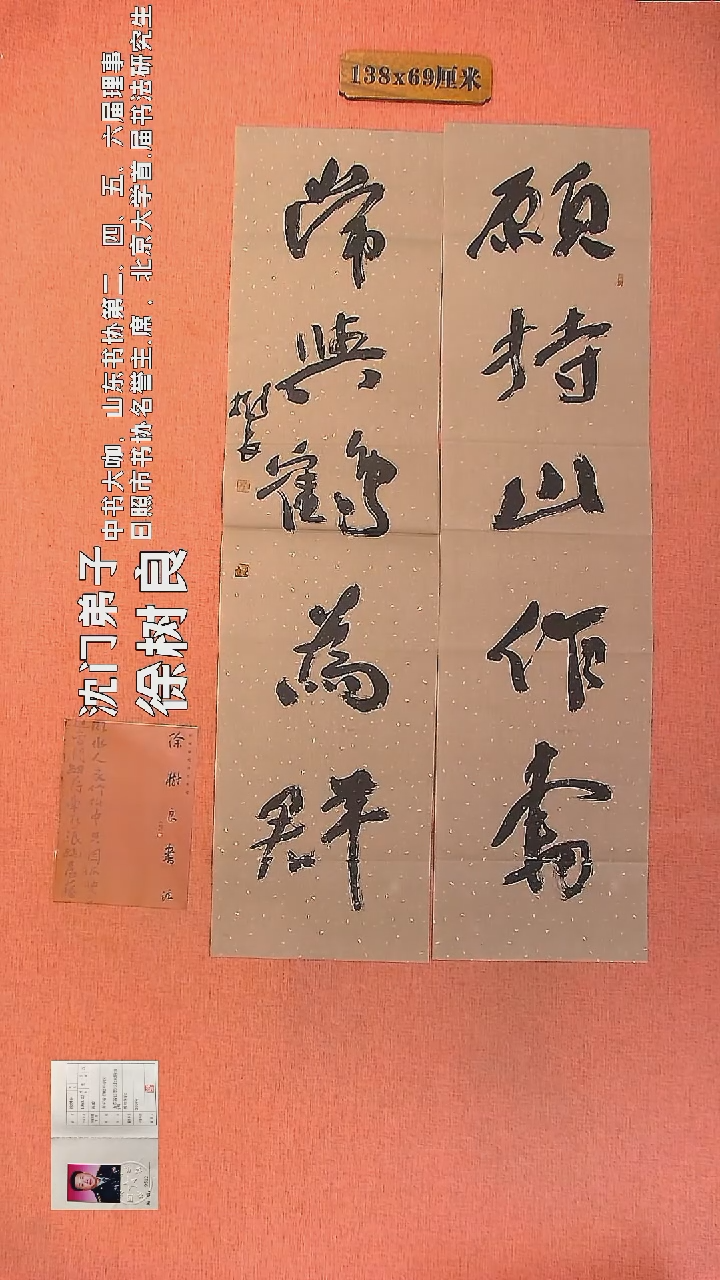 138x69厘米
願持山作壽
常與鶴為群
樹良
沈门弟子
徐树良
中书大咖，山东书协第二、四、五、六届理事
日照市书协名誉主席，北京大学首届书法研究生
徐樹良書法